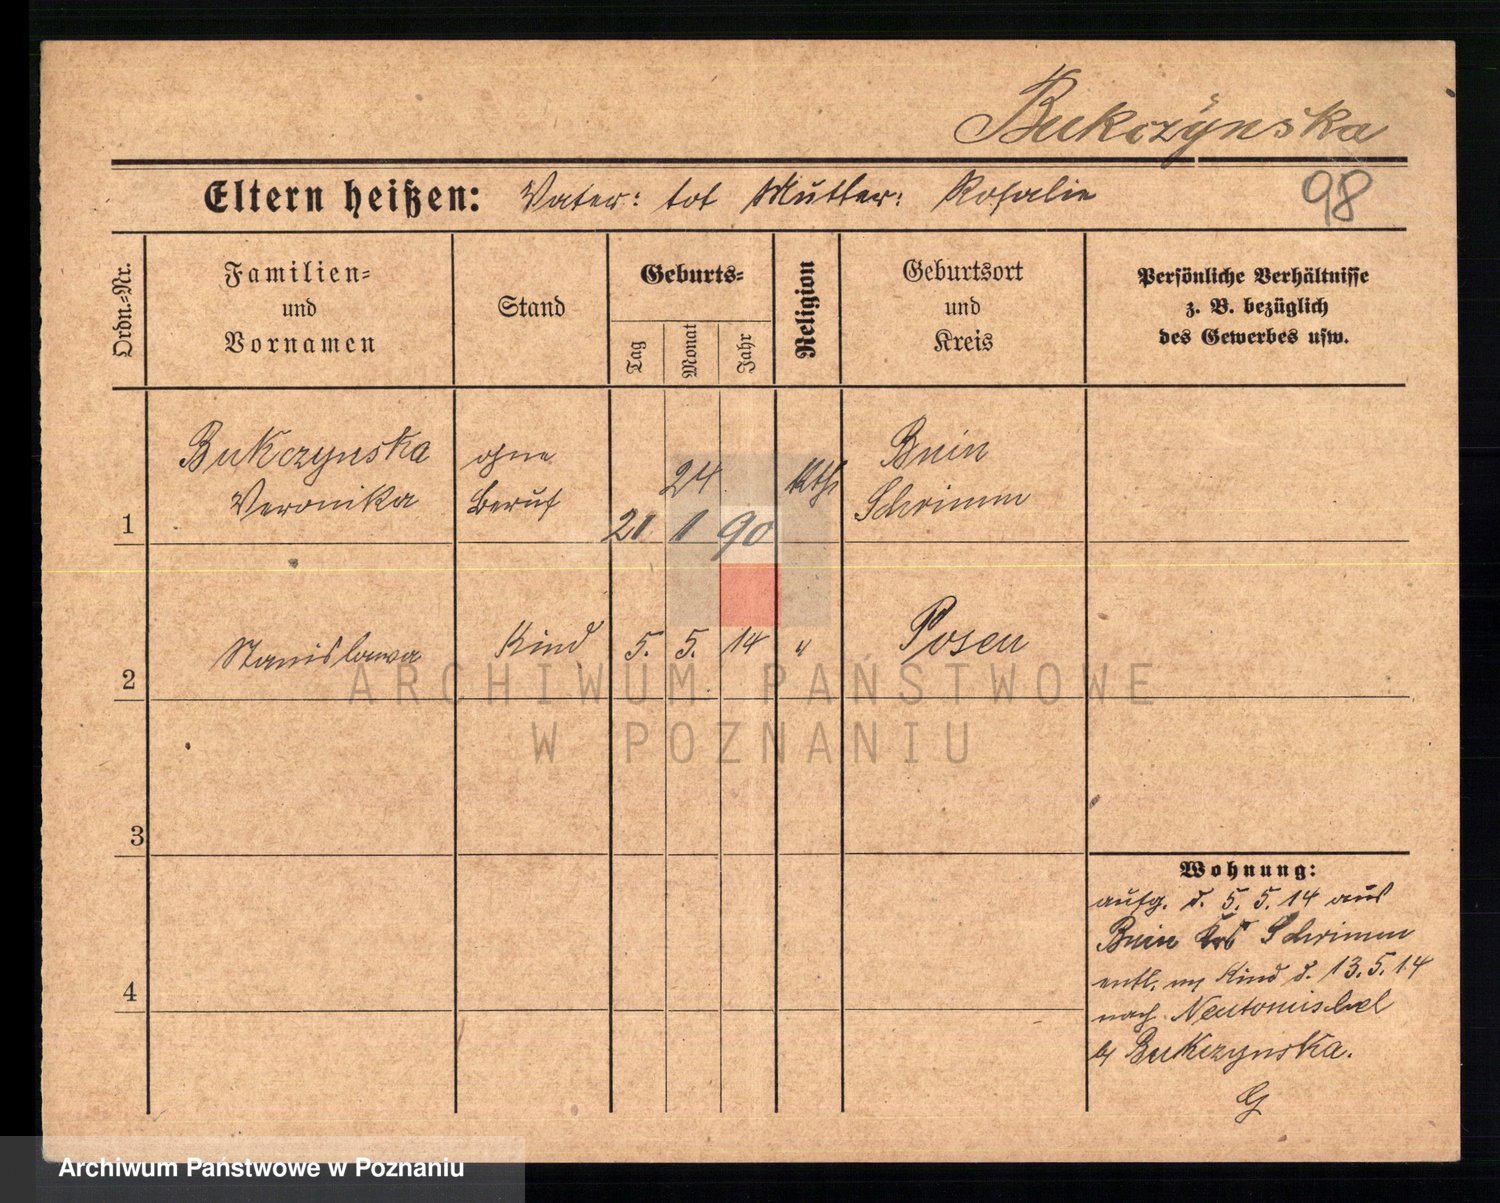 Bukczynska
Eltern heißen: Vater: tot Mutter: Rosalie
98
Ordn.-Nr.
Familien-
und
Vornamen
Stand
Geburts-
Tag
Monat
Jahr
Religion
Geburtsort
und
Kreis
Persönliche Verhältnisse
z. B. bezüglich
des Gewerbes usw.
1
Bukczynska
Veronika
ohne
Beruf
24
21 1 90
kth
Bnin
Schrimm
2
Stanislawa
Kind
5. 5. 14
"
Posen
ARCHIWUM PAŃSTWOWE
W POZNANIU
3
4
Wohnung:
aufg. d. 5. 5. 14 aus
Bnin Krs Schrimm
entl. m Kind d. 13. 5. 14
nach Neutomischel
b Bukczynska.
G
Archiwum Państwowe w Poznaniu